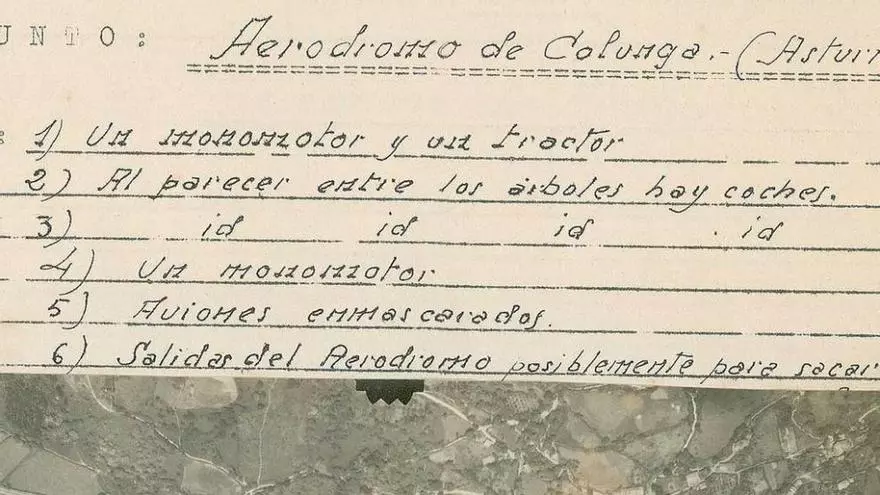 UNTO: Aerodromo de Colunga.- (Astur
: 1) Un monomotor y un tractor
2) Al parecer entre los árboles hay coches.
3) id id id id
4) Un monomotor
5) Aviones enmascarados.
6) Salidas del Aerodromo posiblemente para sacar